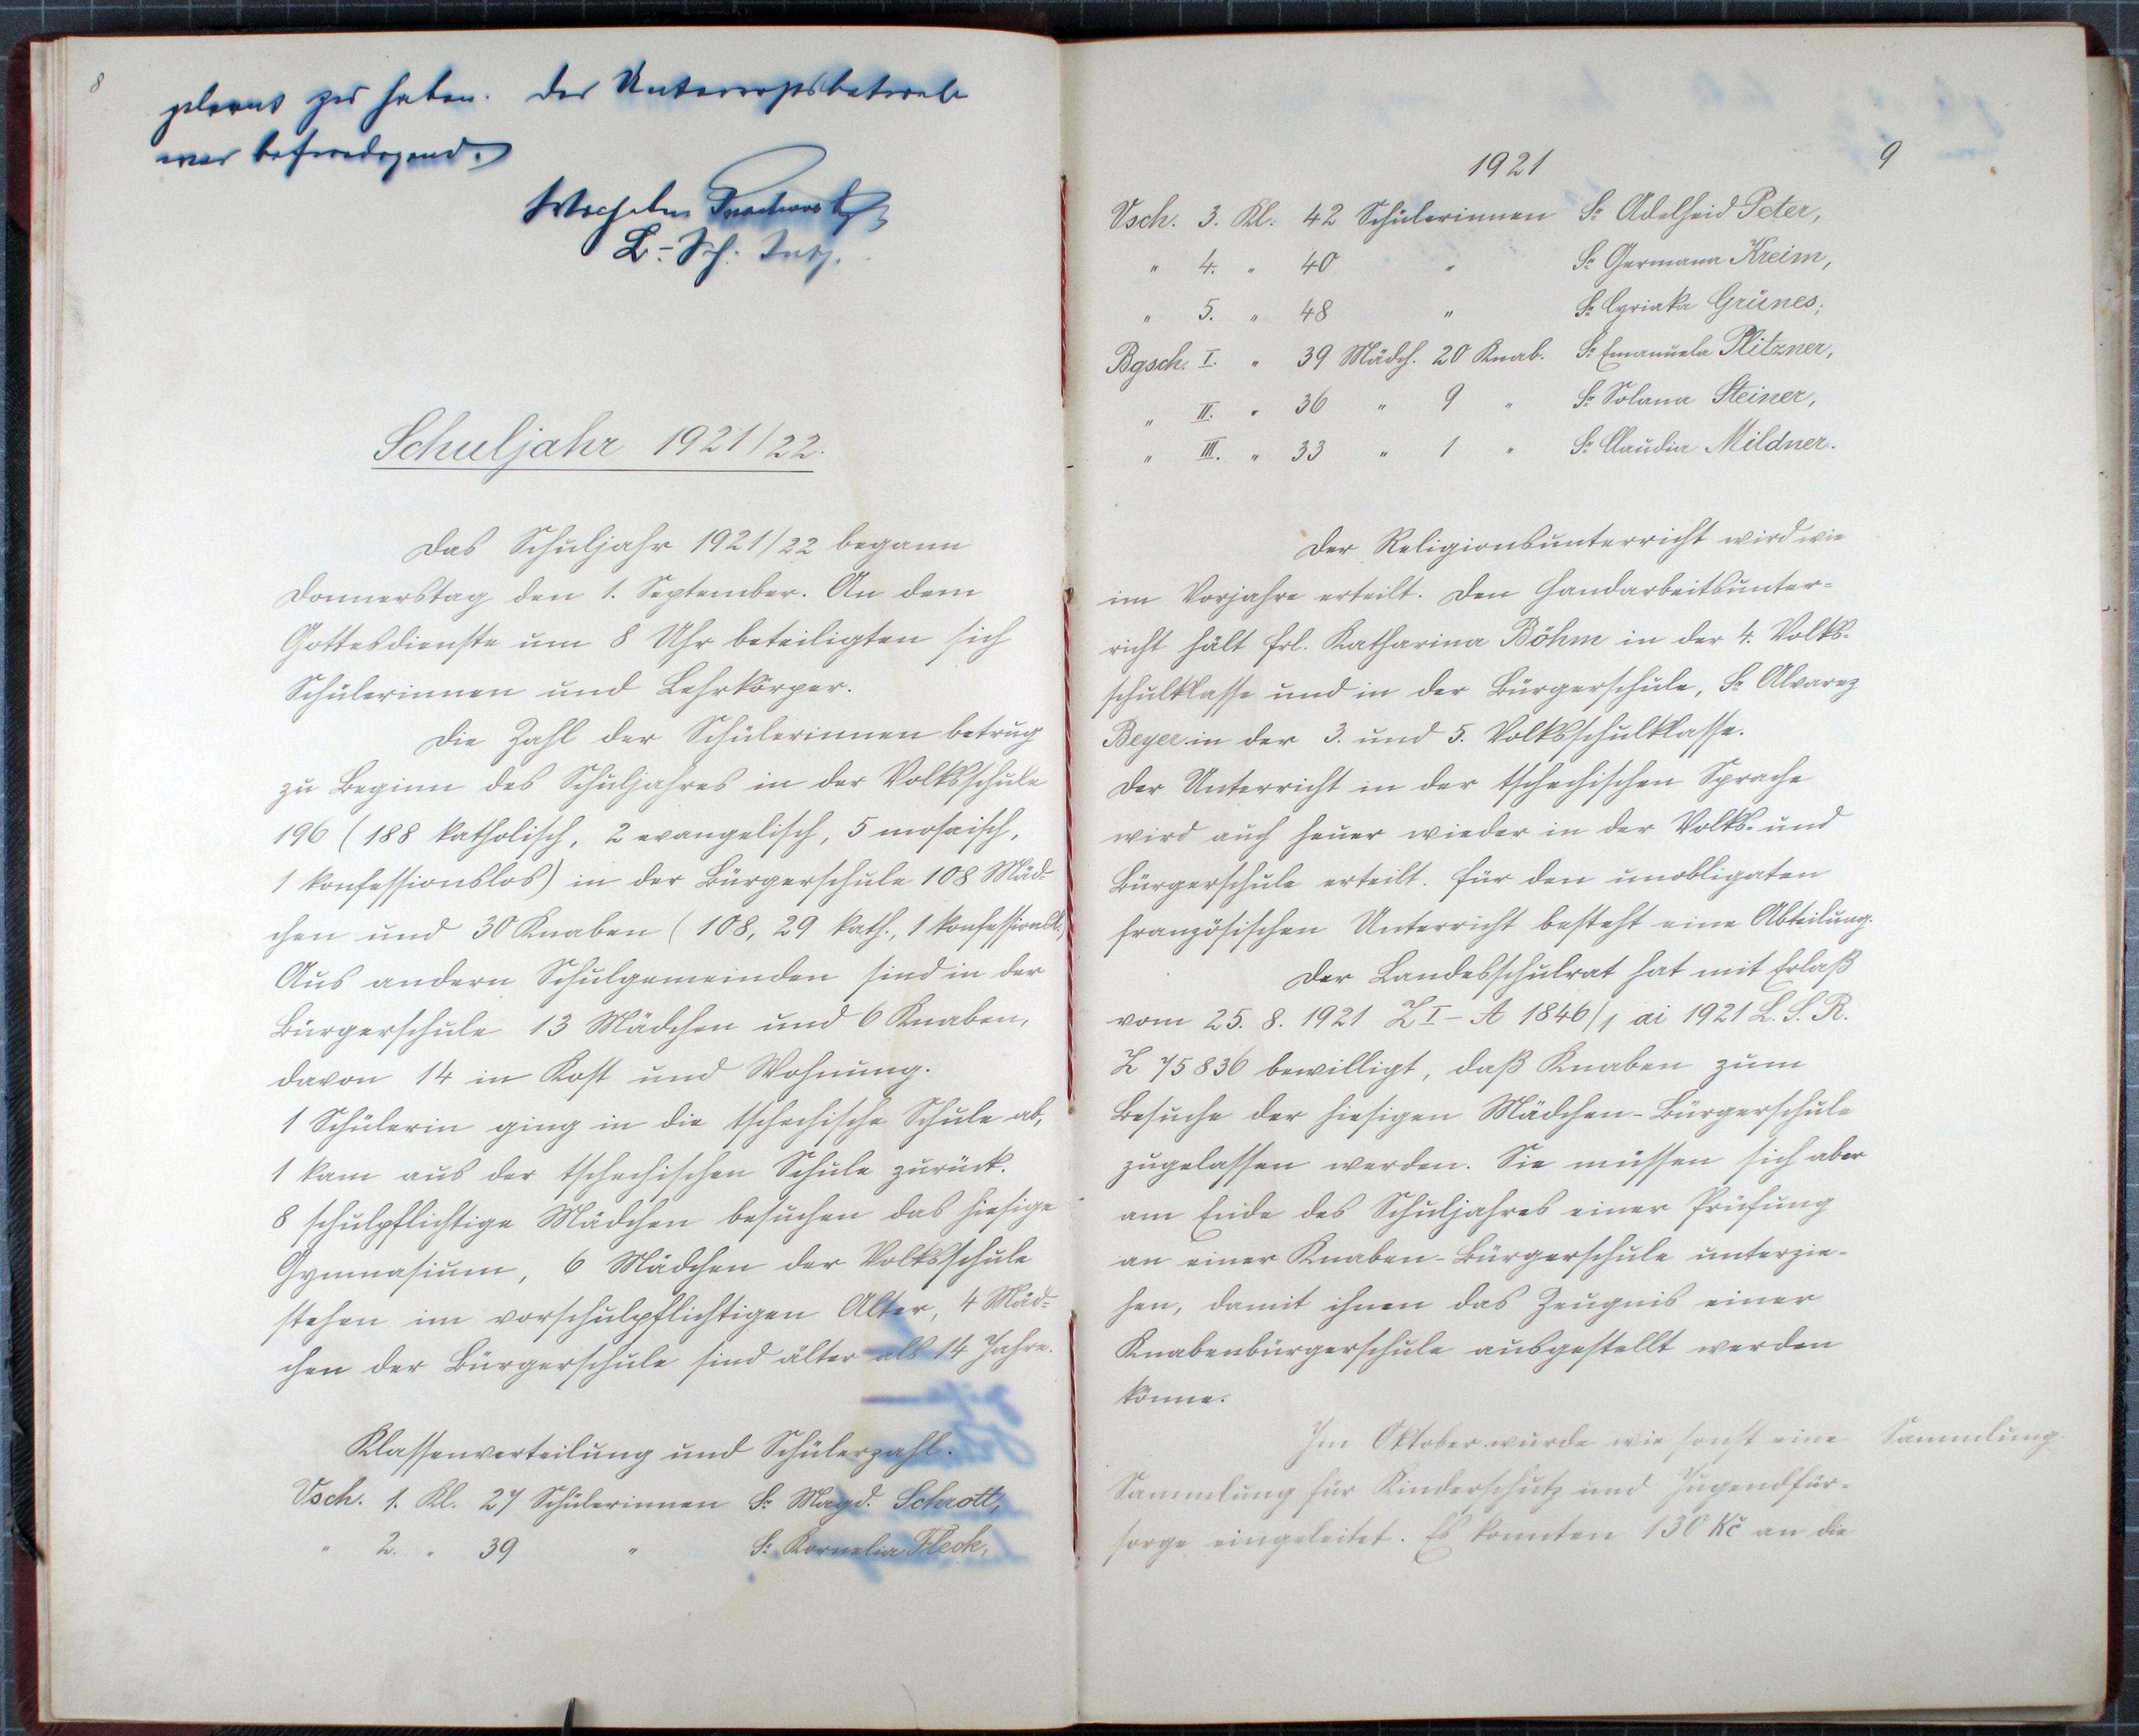 8
gelernt zu haben. Der Unterrichtsbetrieb
war befriedigend.
Schuljahr 1921/22.
Das Schuljahr 1921/22 begann
Donnerstag den 1. September. An dem
Gottesdienste um 8 Uhr beteiligten sich
Schülerinnen und Lehrkörper.
Die Zahl der Schülerinnen betrug
zu Beginn des Schuljahres in der Volksschule
196 (188 katholisch, 2 evangelisch, 5 mosaisch,
1 konfessionslos) in der Bürgerschule 108 Mäd-
chen und 30 Knaben (108, 29 kath., 1 konfessionsl.)
Aus andern Schulgemeinden sind in der
Bürgerschule 13 Mädchen und 6 Knaben,
davon 14 in Kost und Wohnung.
1 Schülerin ging in die tschechische Schule ab,
1 kam aus der tschechischen Schule zurück.
8 schulpflichtige Mädchen besuchen das hiesige
Gymnasium, 6 Mädchen der Volksschule
stehen im vorschulpflichtigen Alter, 4 Mäd-
chen der Bürgerschule sind älter als 14 Jahre.
Klassenverteilung und Schülerzahl.
Vsch. 1. Kl. 27 Schülerinnen Sr. Magd. Schrott,
" 2. " 39 " Sr. Kornelia Fleck,
1921
9
Vsch. 3. Kl. 42 Schülerinnen Sr. Adelheid Peter,
" 4. " 40 " Sr. Germana Kreim,
" 5. " 48 " Sr. Cyriaka Grünes,
Bgsch. I. " 39 Mädch. 20 Knab. Sr. Emanuela Plitzner,
" II. " 36 " 9 " Sr. Solana Steiner,
" III. " 33 " 1 " Sr. Claudia Mildner.
Der Religionsunterricht wird wie
im Vorjahre erteilt. Den Handarbeitsunter-
richt hält Frl. Katharina Böhm in der 4. Volks-
schulklasse und in der Bürgerschule, Sr. Alvarez
Beyer in der 3. und 5. Volksschulklasse.
Der Unterricht in der tschechischen Sprache
wird auch heuer wieder in der Volks- und
Bürgerschule erteilt. Für den unobligaten
französischen Unterricht besteht eine Abteilung.
Der Landesschulrat hat mit Erlaß
vom 25. 8. 1921 Z I - A 1846/1 ai 1921 L. S. R.
Z 75836 bewilligt, daß Knaben zum
Besuche der hiesigen Mädchen-Bürgerschule
zugelassen werden. Sie müssen sich aber
am Ende des Schuljahres einer Prüfung
an einer Knaben-Bürgerschule unterzie-
hen, damit ihnen das Zeugnis einer
Knabenbürgerschule ausgestellt werden
könne.
Im Oktober wurde wie sonst eine Sammlung.
Sammlung für Kinderschutz und Jugendfür-
sorge eingeleitet. Es konnten 130 Kč an die